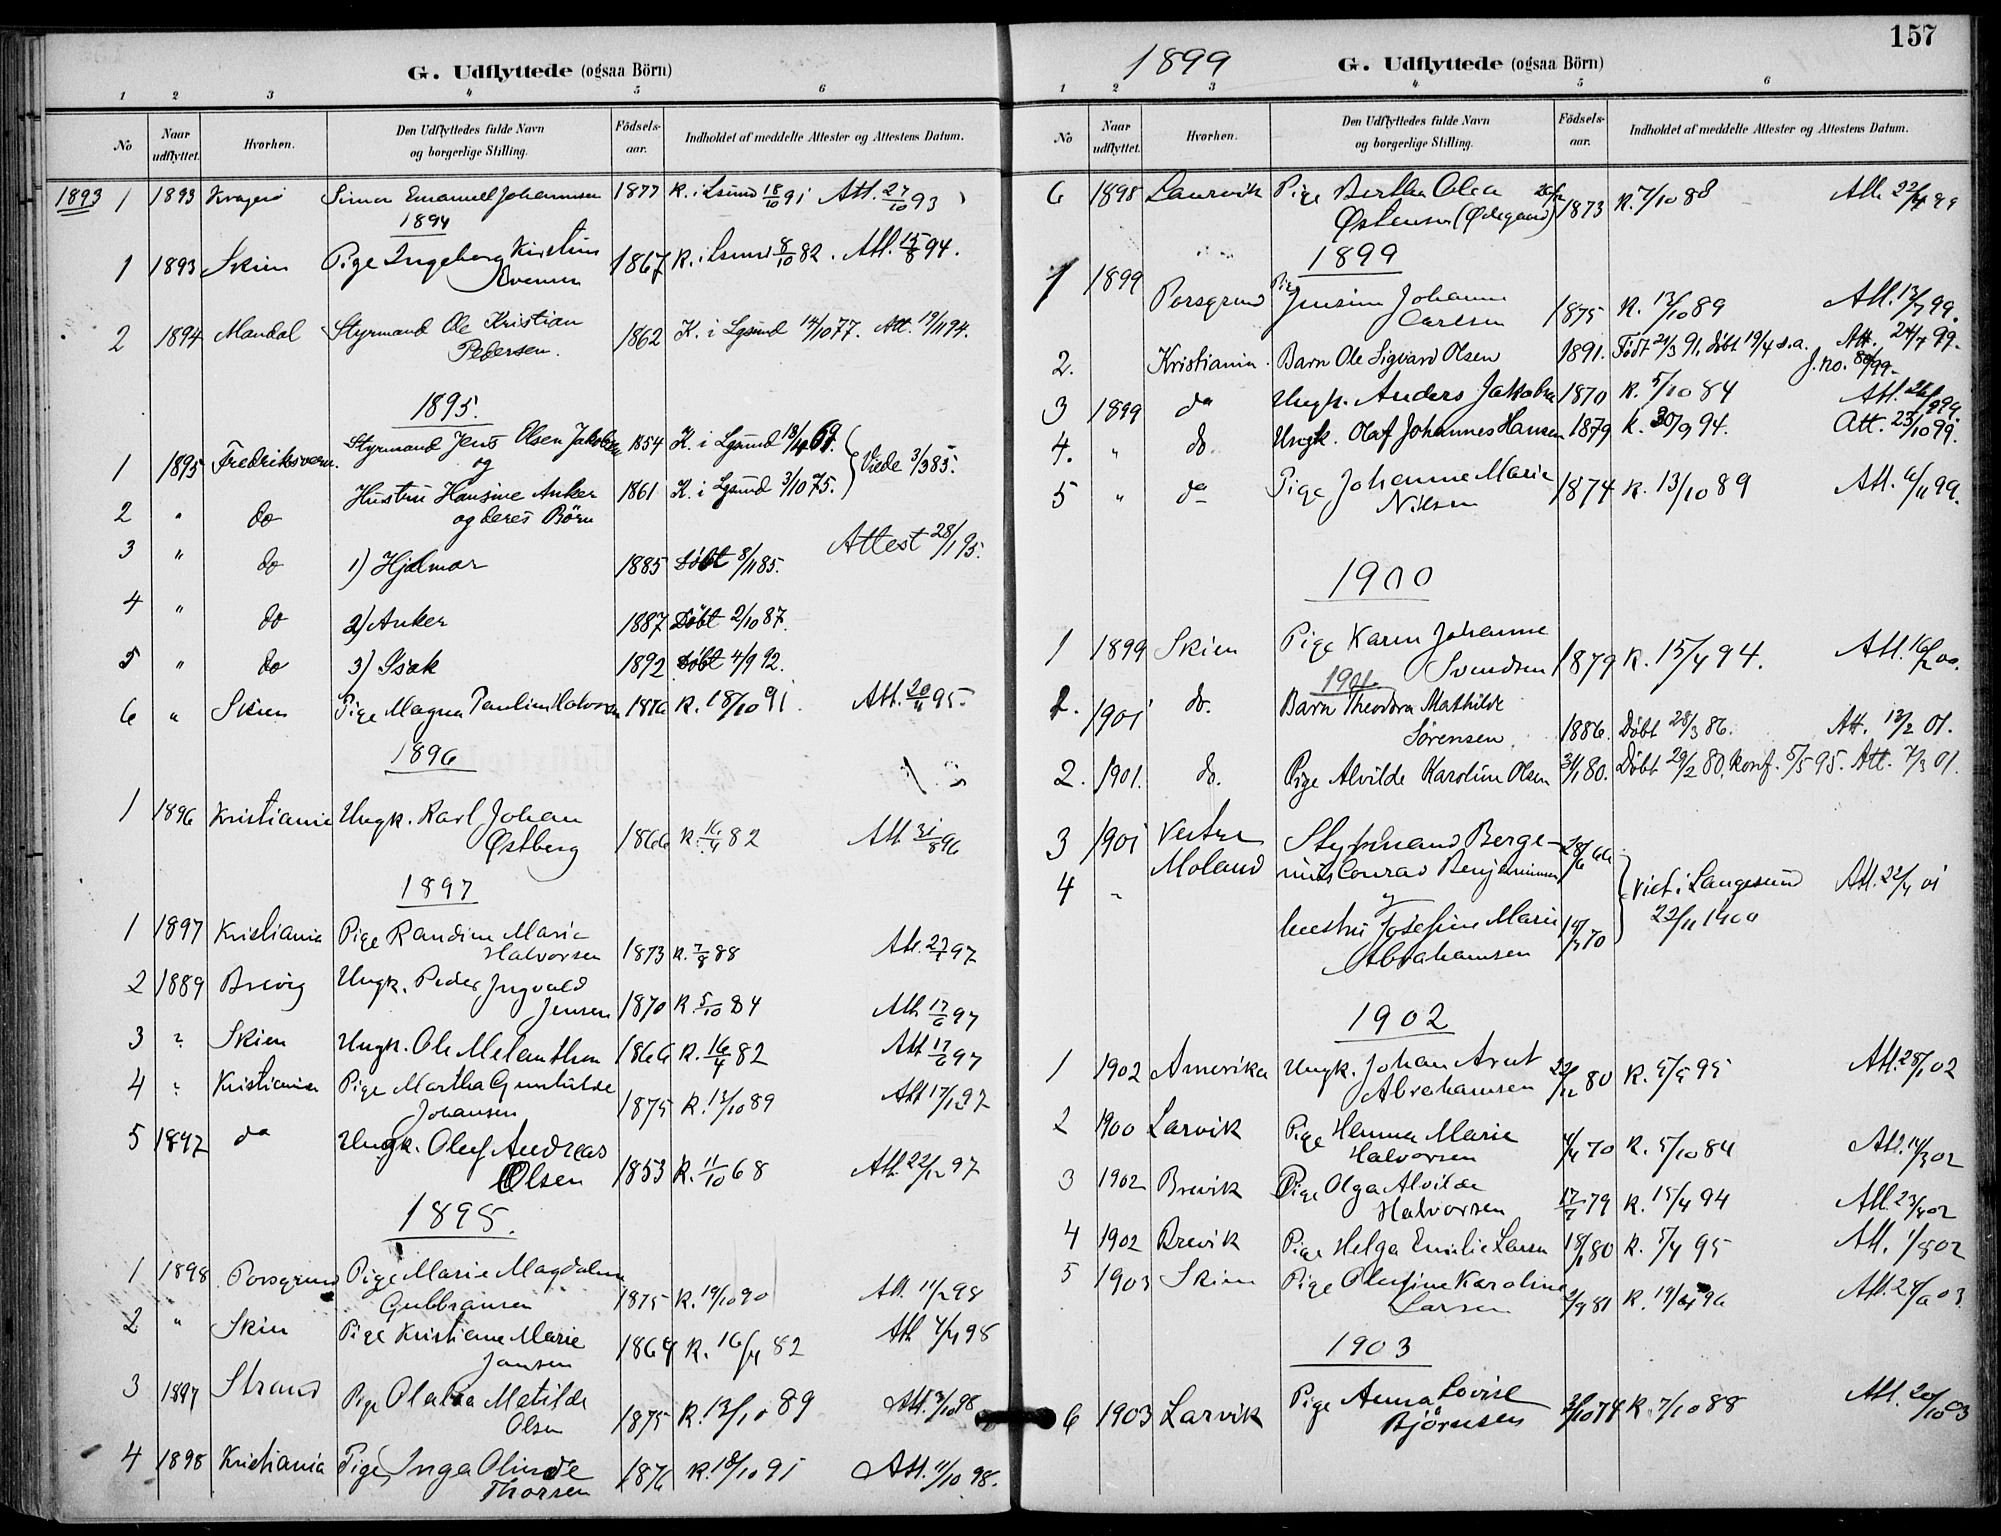 G. Udflyttede (ogsaa Börn)
1 2 3 4 5 6
No Naar udflyttet. Hvorhen. Den Udflyttedes fulde Navn og borgerlige Stilling. Födsels-aar. Indholdet af meddelte Attester og Attestens Datum.
1893 1 1893 Kragerø Simon Emanuel Johannsen 1877 K. i Lsund 18/10 91 Att. 27/10 93
1894
1 1893 Skien Pige Ingeborg Kristine 1867 K. i Lsund 8/10 82. Att. 15/8 94.
2 1894 Mandal Styrmand Ole Kristian
Pedersen. 1862 K. i Lgsund 14/10 77. Att. 19/11 94.
1895.
1 1895 Fredriksværn. Styrmand Jens Olsen Jakobsen 1854 K. i Lgsund
og
2 " do Hustru Hansine Anker 1861 K. i Lgsund 3/10 75. Viede 3/3 85.
og deres Börn
3 " do 1) Hjalmar 1885 Döbt 8/11 85. Attest 28/1 95.
4 " do 2) Anker 1887 Döbt 2/10 87.
5 " do 3) Isak 1892 Döbt 4/9 92.
6 " Skien Pige Magna Pauline Halvorsen 1876 K. 18/10 91. Att. 20/11 95.
1896
1 1896 Kristiania Ungk. Karl Johan
Østberg 1866 K. 16/4 82 Att 31/8 96
1897
1 1897 Kristiania Pige Randine Marie
Halvorsen 1873 K. 7/8 88 Att. 97
2 1889 Brevig Ungk. Peder Ingvald
Jensen 1870 K. 5/10 84 Att 17/6 97
3 ? Skien Ungk. Ole Melanthon 1866 K. 16/4 82 Att 17/6 97
4 ? Kristiania Pige Martha Gunhilde
Johansen 1875 K. 13/10 89 Att 97
5 1897 do Ungk. Oluf Andreas
Olsen 1853 K. 11/10 68 Att. 22/12 97
1895.
1 1898 Porsgrund Pige Marie Magdalene
Gulbransen 1875 K. 19/10 90 Att. 11/2 98
2 " Skien Pige Kristiane Marie
Jansen 1864 K. 16/4 82 Att 98
3 1897 Strand Pige Olalia Matilde
Olsen 1875 K. 13/10 89 Att. 98
4 1898 Kristiania Pige Inga Olinde
Thorsen 1876 K. 18/10 91 Att. 11/10 98.
157
1899 G. Udflyttede (ogsaa Börn)
1 2 3 4 5 6
No Naar udflyttet. Hvorhen. Den Udflyttedes fulde Navn og borgerlige Stilling. Födsels-aar. Indholdet af meddelte Attester og Attestens Datum.
6 1898 Laurvik Pige Bertha Olea
Østensen (Ødegaard) 1873 K. 7/10 88 Att. 22/4 99
1899
1 1899 Porsgrund Pige Jensine Johanne
Carlsen 1875 K. 13/10 89 Att. 13/7 99.
2. Kristiania. Barn Ole Sigvard Olsen 1891. Födt 21/3 91, döbt 19/4 s.a. Att. 24/7 99.
J.no. 80/99
3 1899 do Ungk. Anders Jakobsen 1870 K. 5/10 84 Att. 99.
4. " do. Ungk. Olaf Johannes Hansen 1879 K. 30/9 94. Att. 23/10 99.
5 " do Pige Johanne Marie
Nilsen 1874 K. 13/10 89 Att. 6/11 99.
1900
1 1899 Skien Pige Karen Johanne
Svendsen 1879 K. 15/4 94. Att. 16/2 00.
1901.
1. 1901 do. Barn Theodora Mathilde
Sørensen. 1886. Döbt 28/3 86. Att. 13/2 01.
2. 1901. do. Pige Alvilde Karoline Olsen 31/1 80. Döbt 29/2 80, Konf. 5/5 95. Att. 7/3 01.
3 1901 Vestre Styrmand Berge-
4 " Moland nius Conrad Benjaminsen 28/6 66 viet i Langesund Att. 22/4 01
og
hustru Josefine Marie 70 22/11 1900
Abrahamsen
1902
1 1902 Amerika Ungk. Johan Arnt
Abrahamsen 22/12 80 K. 5/5 95 Att. 28/1 02
2 1900 Larvik Pige Hanna Marie
Halvorsen 4/4 70 K. 5/10 84 Att. 02
3 1902 Brevik Pige Olga Alvilde
Halvorsen 79 K. 15/4 94 Att. 23/4 02
4 1902 Brevik Pige Helga Emilie Larsen 18/1 80 K. 95 Att. 1/8 02
5 1903 Skien Pige Olufine Karoline
Larsen 2/9 81 K. 96 Att. 03
1903
6 1903 Larvik Pige Anna Lovise
Björnsen 2/10 74 K. 7/10 88 Att. 20/10 03